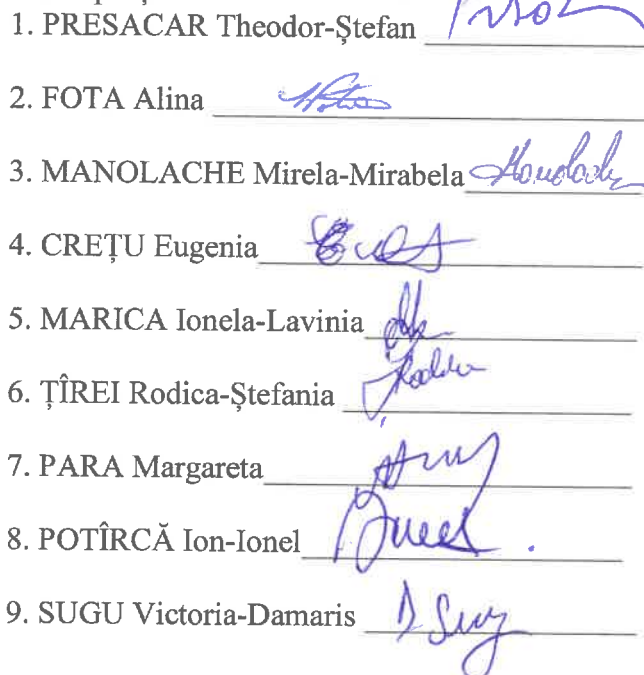 1. PRESACAR Theodor-Ștefan
2. FOTA Alina
3. MANOLACHE Mirela-Mirabela Manolache
4. CREȚU Eugenia
5. MARICA Ionela-Lavinia
6. ȚÎREI Rodica-Ștefania
7. PARA Margareta
8. POTÎRCĂ Ion-Ionel
9. SUGU Victoria-Damaris